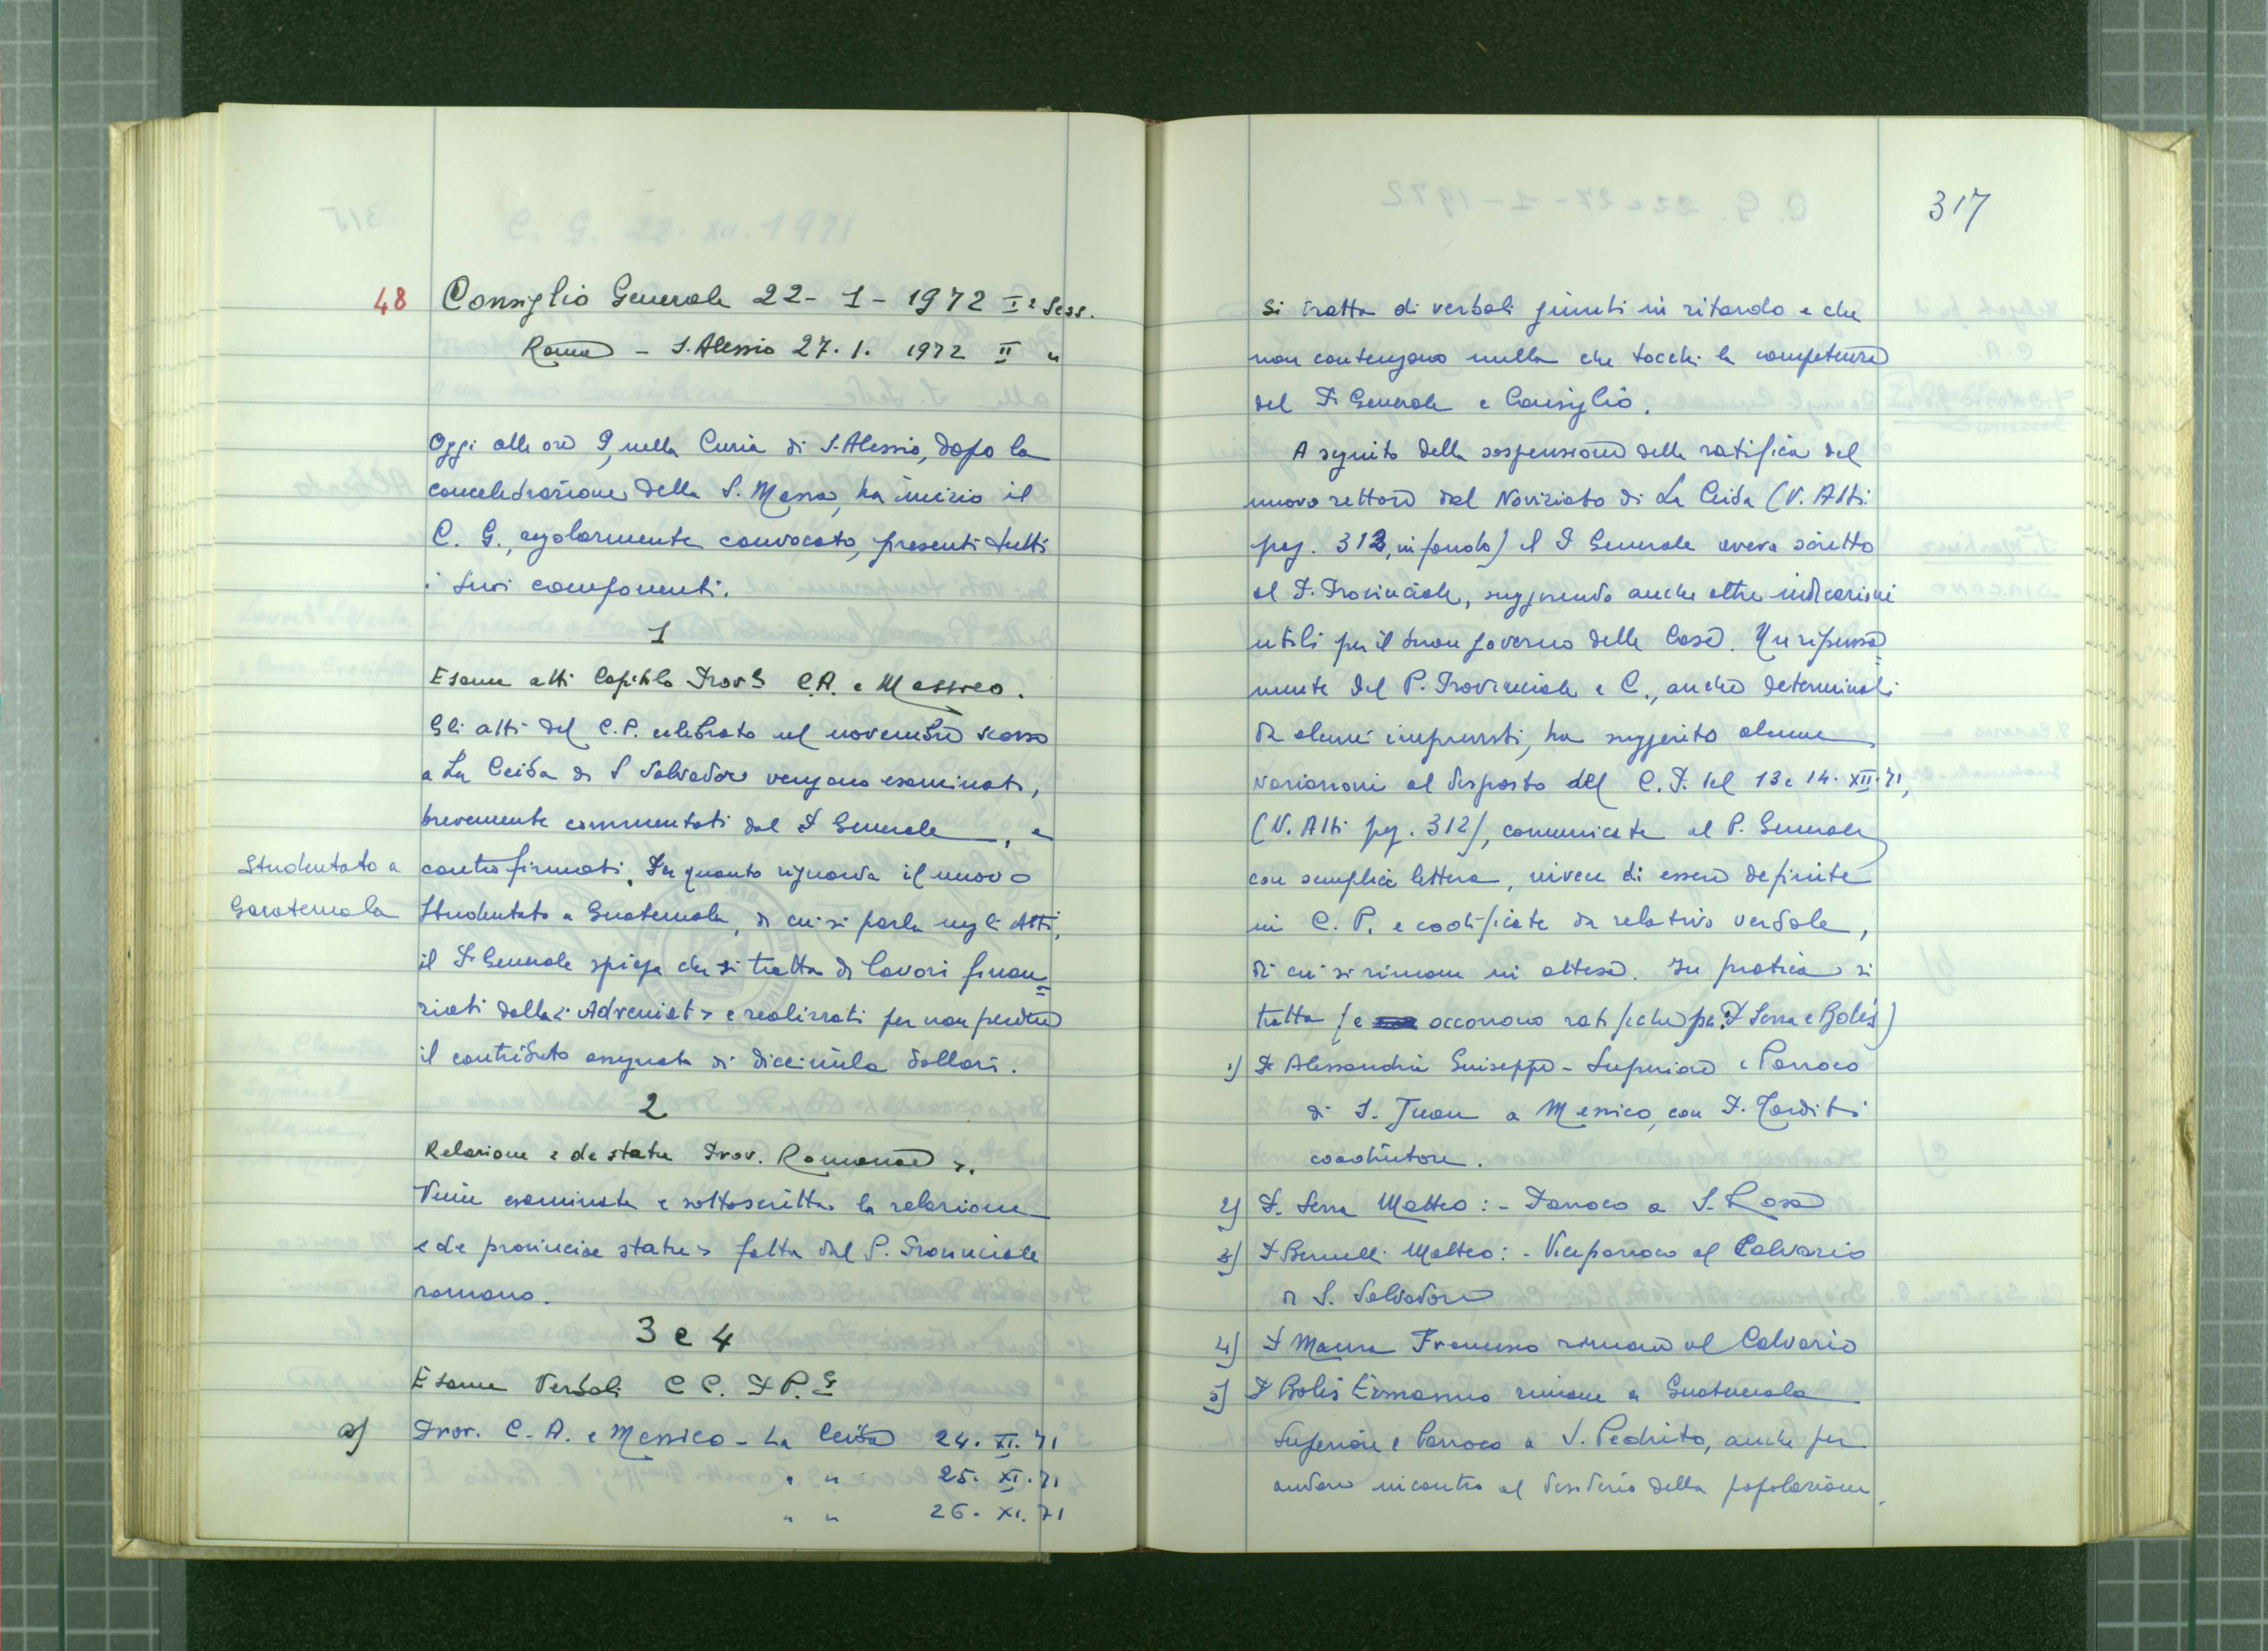 48 Consiglio Generale 22-1-1972 Iª Sess.
Roma - S. Alessio 27.1. 1972 II "
Oggi alle ore 9, nella Curia di S. Alessio, dopo la
concelebrazione della S. Messa, ha inizio il
C. G., regolarmente convocato, presenti tutti
i suoi componenti.
1
Esame atti Capitolo Prov.le C.A. e Messico.
Gli atti del C.P. celebrato nel novembre scorso
a La Ceiba di S Salvador vengono esaminati,
brevemente commentati dal P Generale, e
Studentato a
Guatemala
controfirmati. Per quanto riguarda il nuovo
Studentato a Guatemala, di cui si parla negli Atti,
il P. Generale spiega che si tratta di lavori finan=
ziati dalla «Adveniat» e realizzati per non perdere
il contributo assegnato di diecimila dollari.
2
Relazione «de statu Prov. Romanae».
Viene esaminata e sottoscritta la relazione
«de provinciae statu» fatta dal P. Provinciale
romano.
3 e 4
Esame Verbali C C. P P.li
a) Prov. C. A. e Messico - La Ceiba 24. XI. 71
" " 25. XI. 71
" " 26. XI. 71
317
Si tratta di verbali giunti in ritardo e che
non contengono nulla che tocchi la competenza
del P. Generale e Consiglio.
A seguito della sospensione della ratifica del
nuovo rettore del Noviziato di La Ceiba (V. Atti
pag. 313, in fondo) il P Generale aveva scritto
al P. Provinciale, suggerendo anche altre indicazioni
utili per il buon governo delle Case. Un ripensa=
mento del P. Provinciale e C., anche determinati
da alcuni imprevisti, ha suggerito alcune
variazioni al disposto del C. P. del 13 e 14. XII. 71,
(V. Atti pag. 312), comunicate al P. Generale
con semplice lettera, invece di essere definite
in C. P. e codificate da relativo verbale,
di cui si rimane in attesa. In pratica si
tratta (e occorrono ratifiche per P Serra e Bolis)
1) P Alessandrini Giuseppe - Superiore e Parroco
di S. Juan a Messico, con P.
coadiutore.
2) P. Serra Matteo: - Parroco a S. Rosa
3) P Brunelli Matteo: - Viceparroco al Calvario
di S. Salvador
4) P Manna Francesco rimane al Calvario
5) P Bolis Ermanno rimane a Guatemala
Superiore e Parroco a S. Pedrito, anche per
andare incontro al desiderio della popolazione.